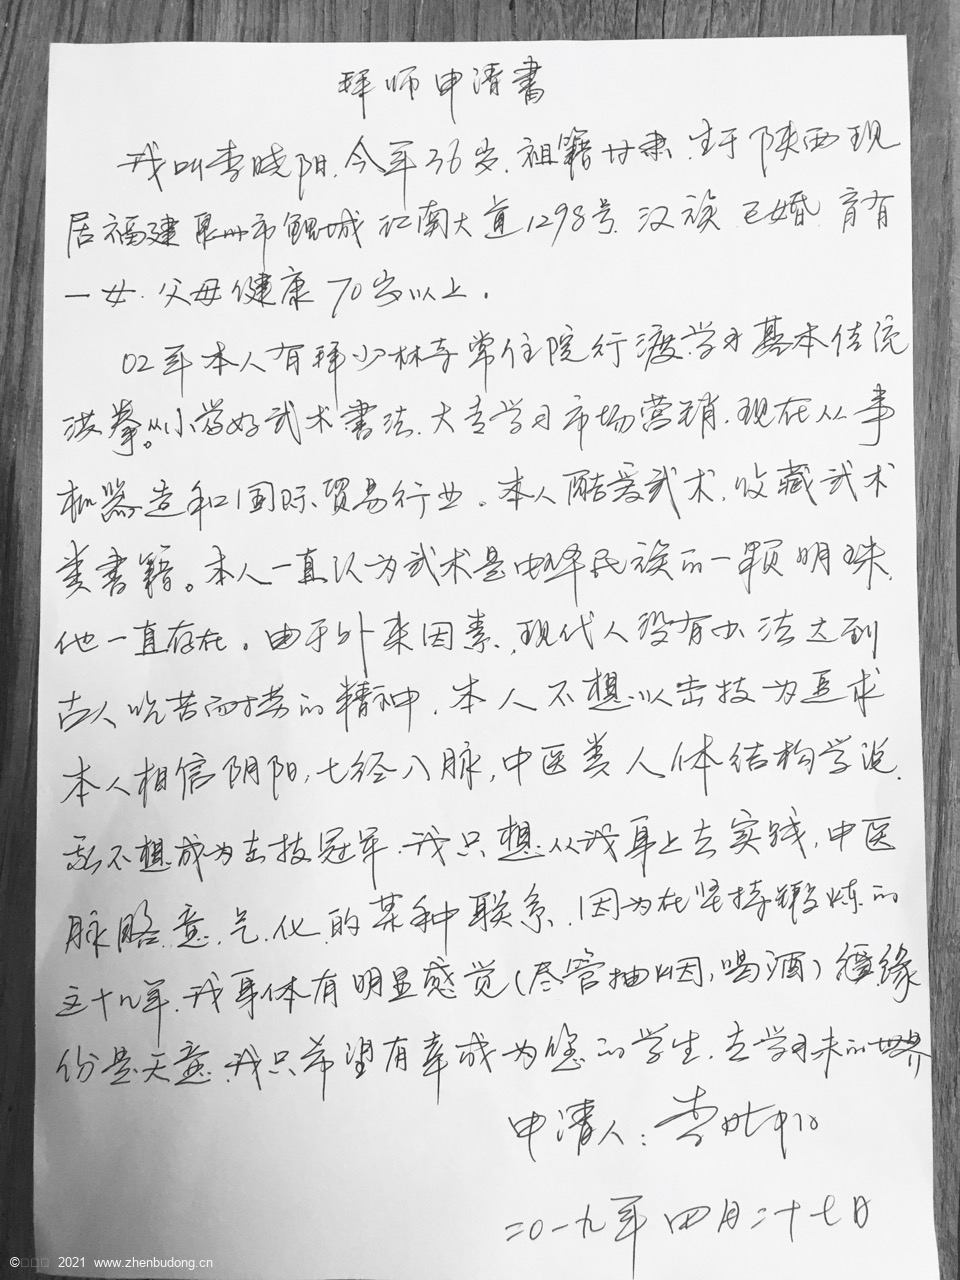 拜师申请书
我叫李晓阳.今年36岁.祖籍甘肃.生于陕西现
居福建泉州市鲤城江南大道1298号.汉族 已婚 育有
一女.父母健康70岁以上.
02年本人有拜少林寺常住院行渡.学习基本传统
洪拳。从小学好武术書法.大专学习市场营销.现在从事
机器造和国际贸易行业。本人酷爱武术.收藏武术
类書籍。本人一直认为武术是中华民族的一颗明珠.
他一直存在。由于外来因素.现代人没有办法达到
古人吃苦而耐劳的精神.本人不想以击技为追求
本人相信阴阳,七经八脉,中医类人体结构学说.
我不想成为击技冠军.我只想从我身上去实践.中医
脉胳.意.气.化.的某种联系.因为在坚持锻炼的
这十几年.我身体有明显感觉(尽管抽烟,喝酒)缘
份是天意.我只希望有幸成为您的学生.去学习未的世界
申请人:李晓阳
二〇一九年四月二十七日
© 2021 www.zhenbudong.cn